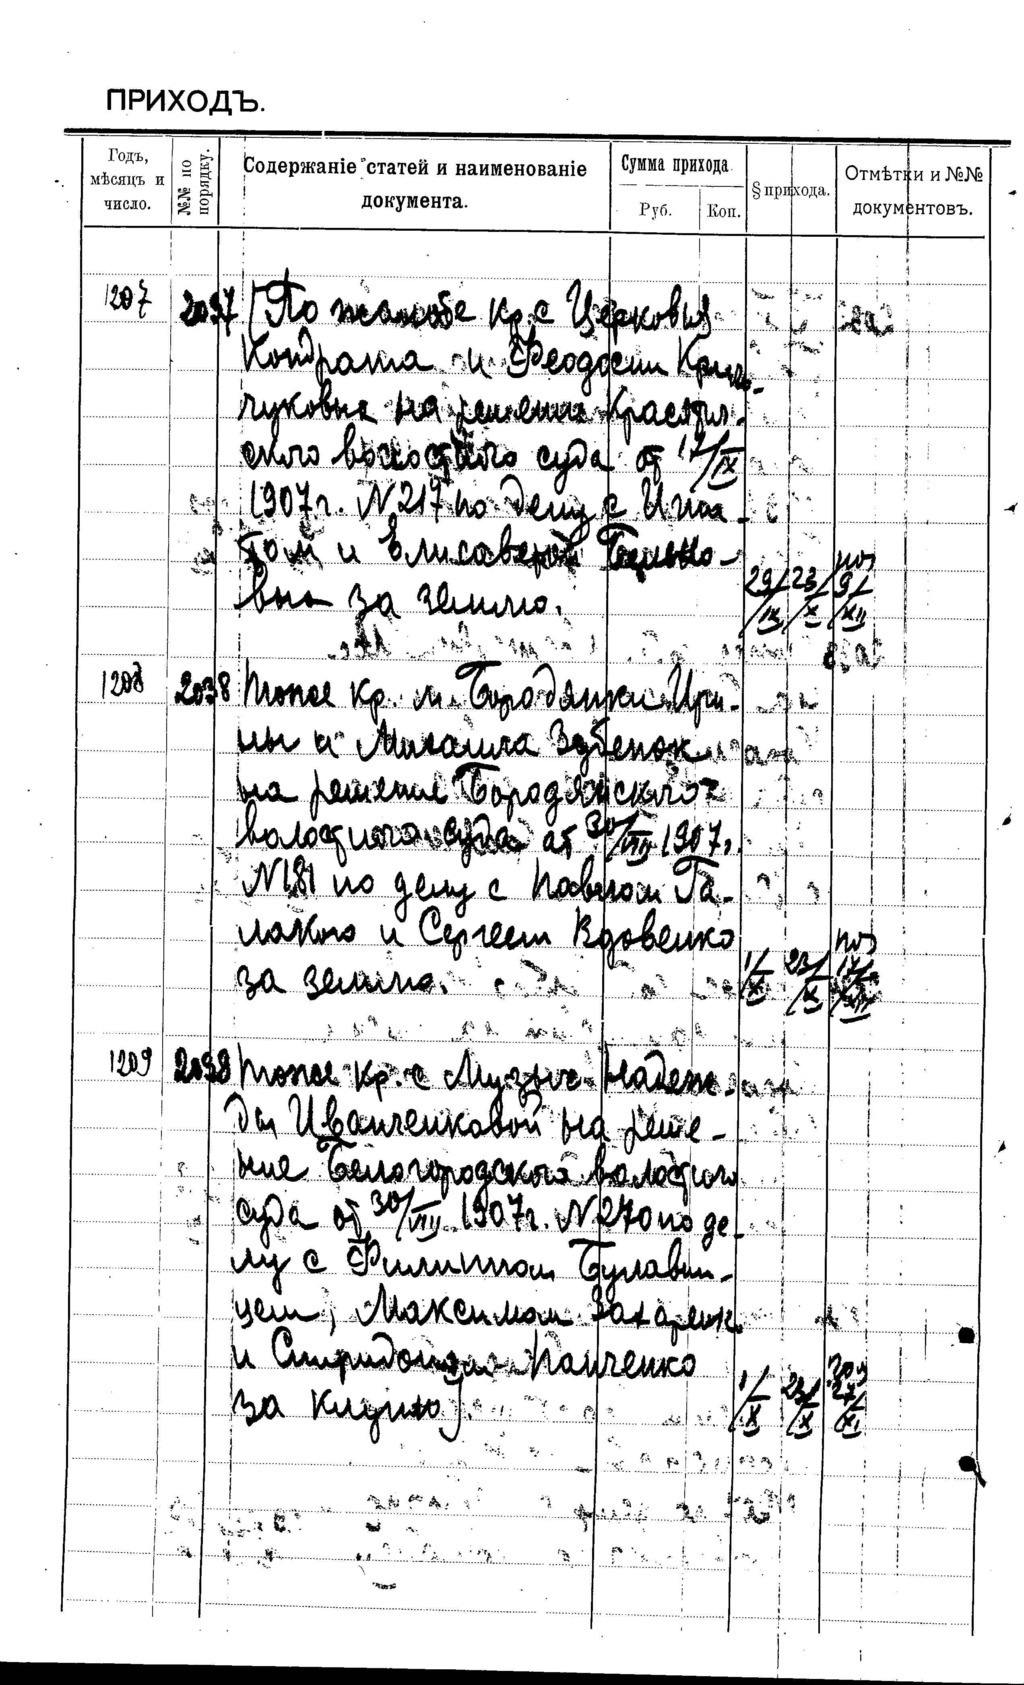 ПРИХОДЪ.
Годъ, мѣсяцъ и число.
№№ по порядку.
Содержаніе статей и наименованіе документа.
Сумма прихода.
Руб.
Коп.
§ прихода.
Отмѣтки и №№ документовъ.
1207 2037 По жалобе кр. с Церковья
Кондрата и Феодосии
на решение
волостного суда от 17/IX
1907 г. N 217 по делу с Игна-
том и Елисаветой
за землю. 29/IX 23/X 9/XII
1208 2038 тоже кр. м. Бородянки Ири-
ны и Михаила Зубенок
на решение Бородянского
волостного суда от 30/VIII 1907 г.
N 181 по делу с Павлом Га-
лаком и Сергеем Вдовенко
за землю. 1/X 23/X 17/XII
1209 тоже кр. с Музыч Надеж-
ды Иванченковой на реше-
ние Белогородского волостного
суда от 30/VIII 1907 г. N 270 по де-
лу с Филиппом Булавин-
цем, Максимом Захарченко
и Спиридоном Панченко
за клуню 1/X 23/X 27/XI